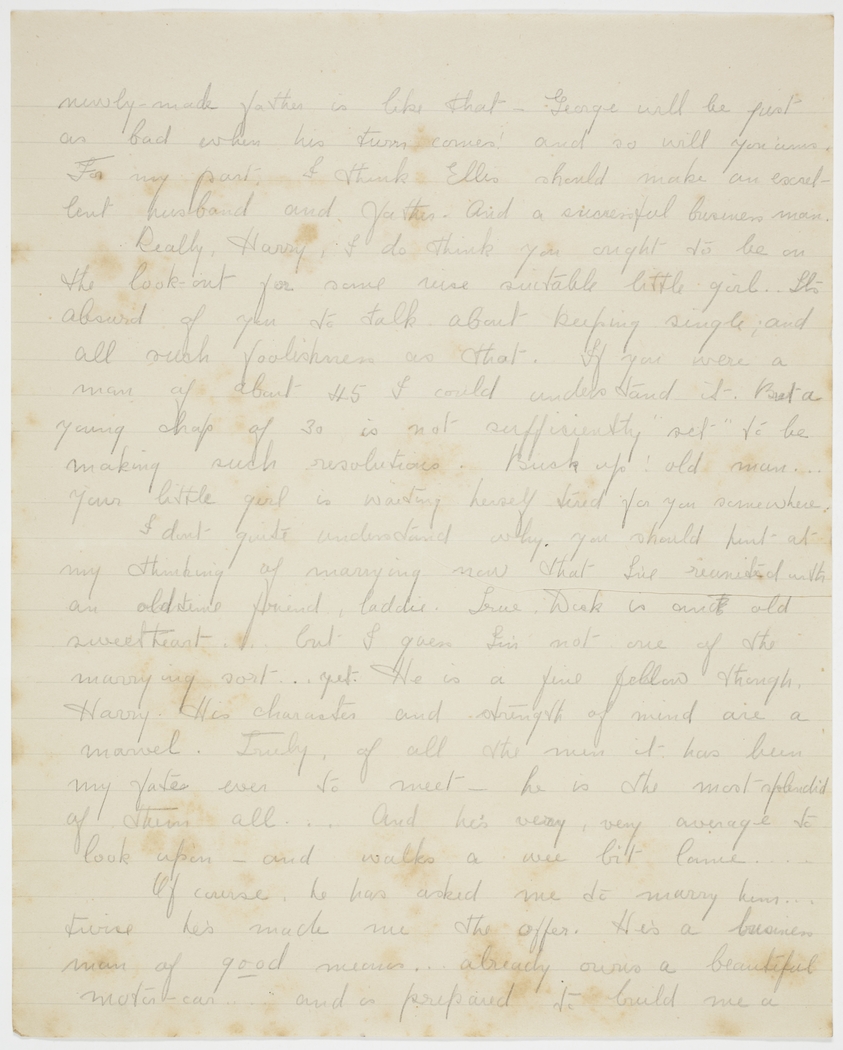 newly-made father is like that - George will be just
as bad when his turn comes! and so will you ums.
For my part, I think Ellis should make an excel-
lent husband and father. And a successful business man.
Really, Harry, I do think you ought to be on
the look-out for some nice suitable little girl.. Its
absurd of you to talk about keeping single, and
all such foolishness as that. If you were a
man of about 45 I could understand it. But a
young chap of 30 is not sufficiently "set" to be
making such resolutions. Buck up! old man...
Your little girl is waiting herself tired for you somewhere.
I dont quite understand why you should hint at
my thinking of marrying now that I've reunited with
an oldtime friend, laddie. True, Dick is an old
sweetheart... but I guess I'm not one of the
marrying sort... yet. He is a fine fellow though,
Harry. His character and strength of mind are a
marvel. Truly, of all the men it has been
my fate ever to meet - he is the most splendid
of them all... And he's very, very average to
look upon - and walks a wee bit lame....
Of course, he has asked me to marry him...
twice he's made me the offer. He's a business
man of good means... already owns a beautiful
motor-car.... and is prepared to build me a